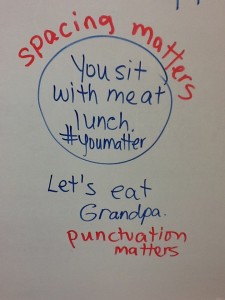 spacing matters
You sit
with me at
lunch.
#youmatter
Let's eat
Grandpa.
punctuation
matters